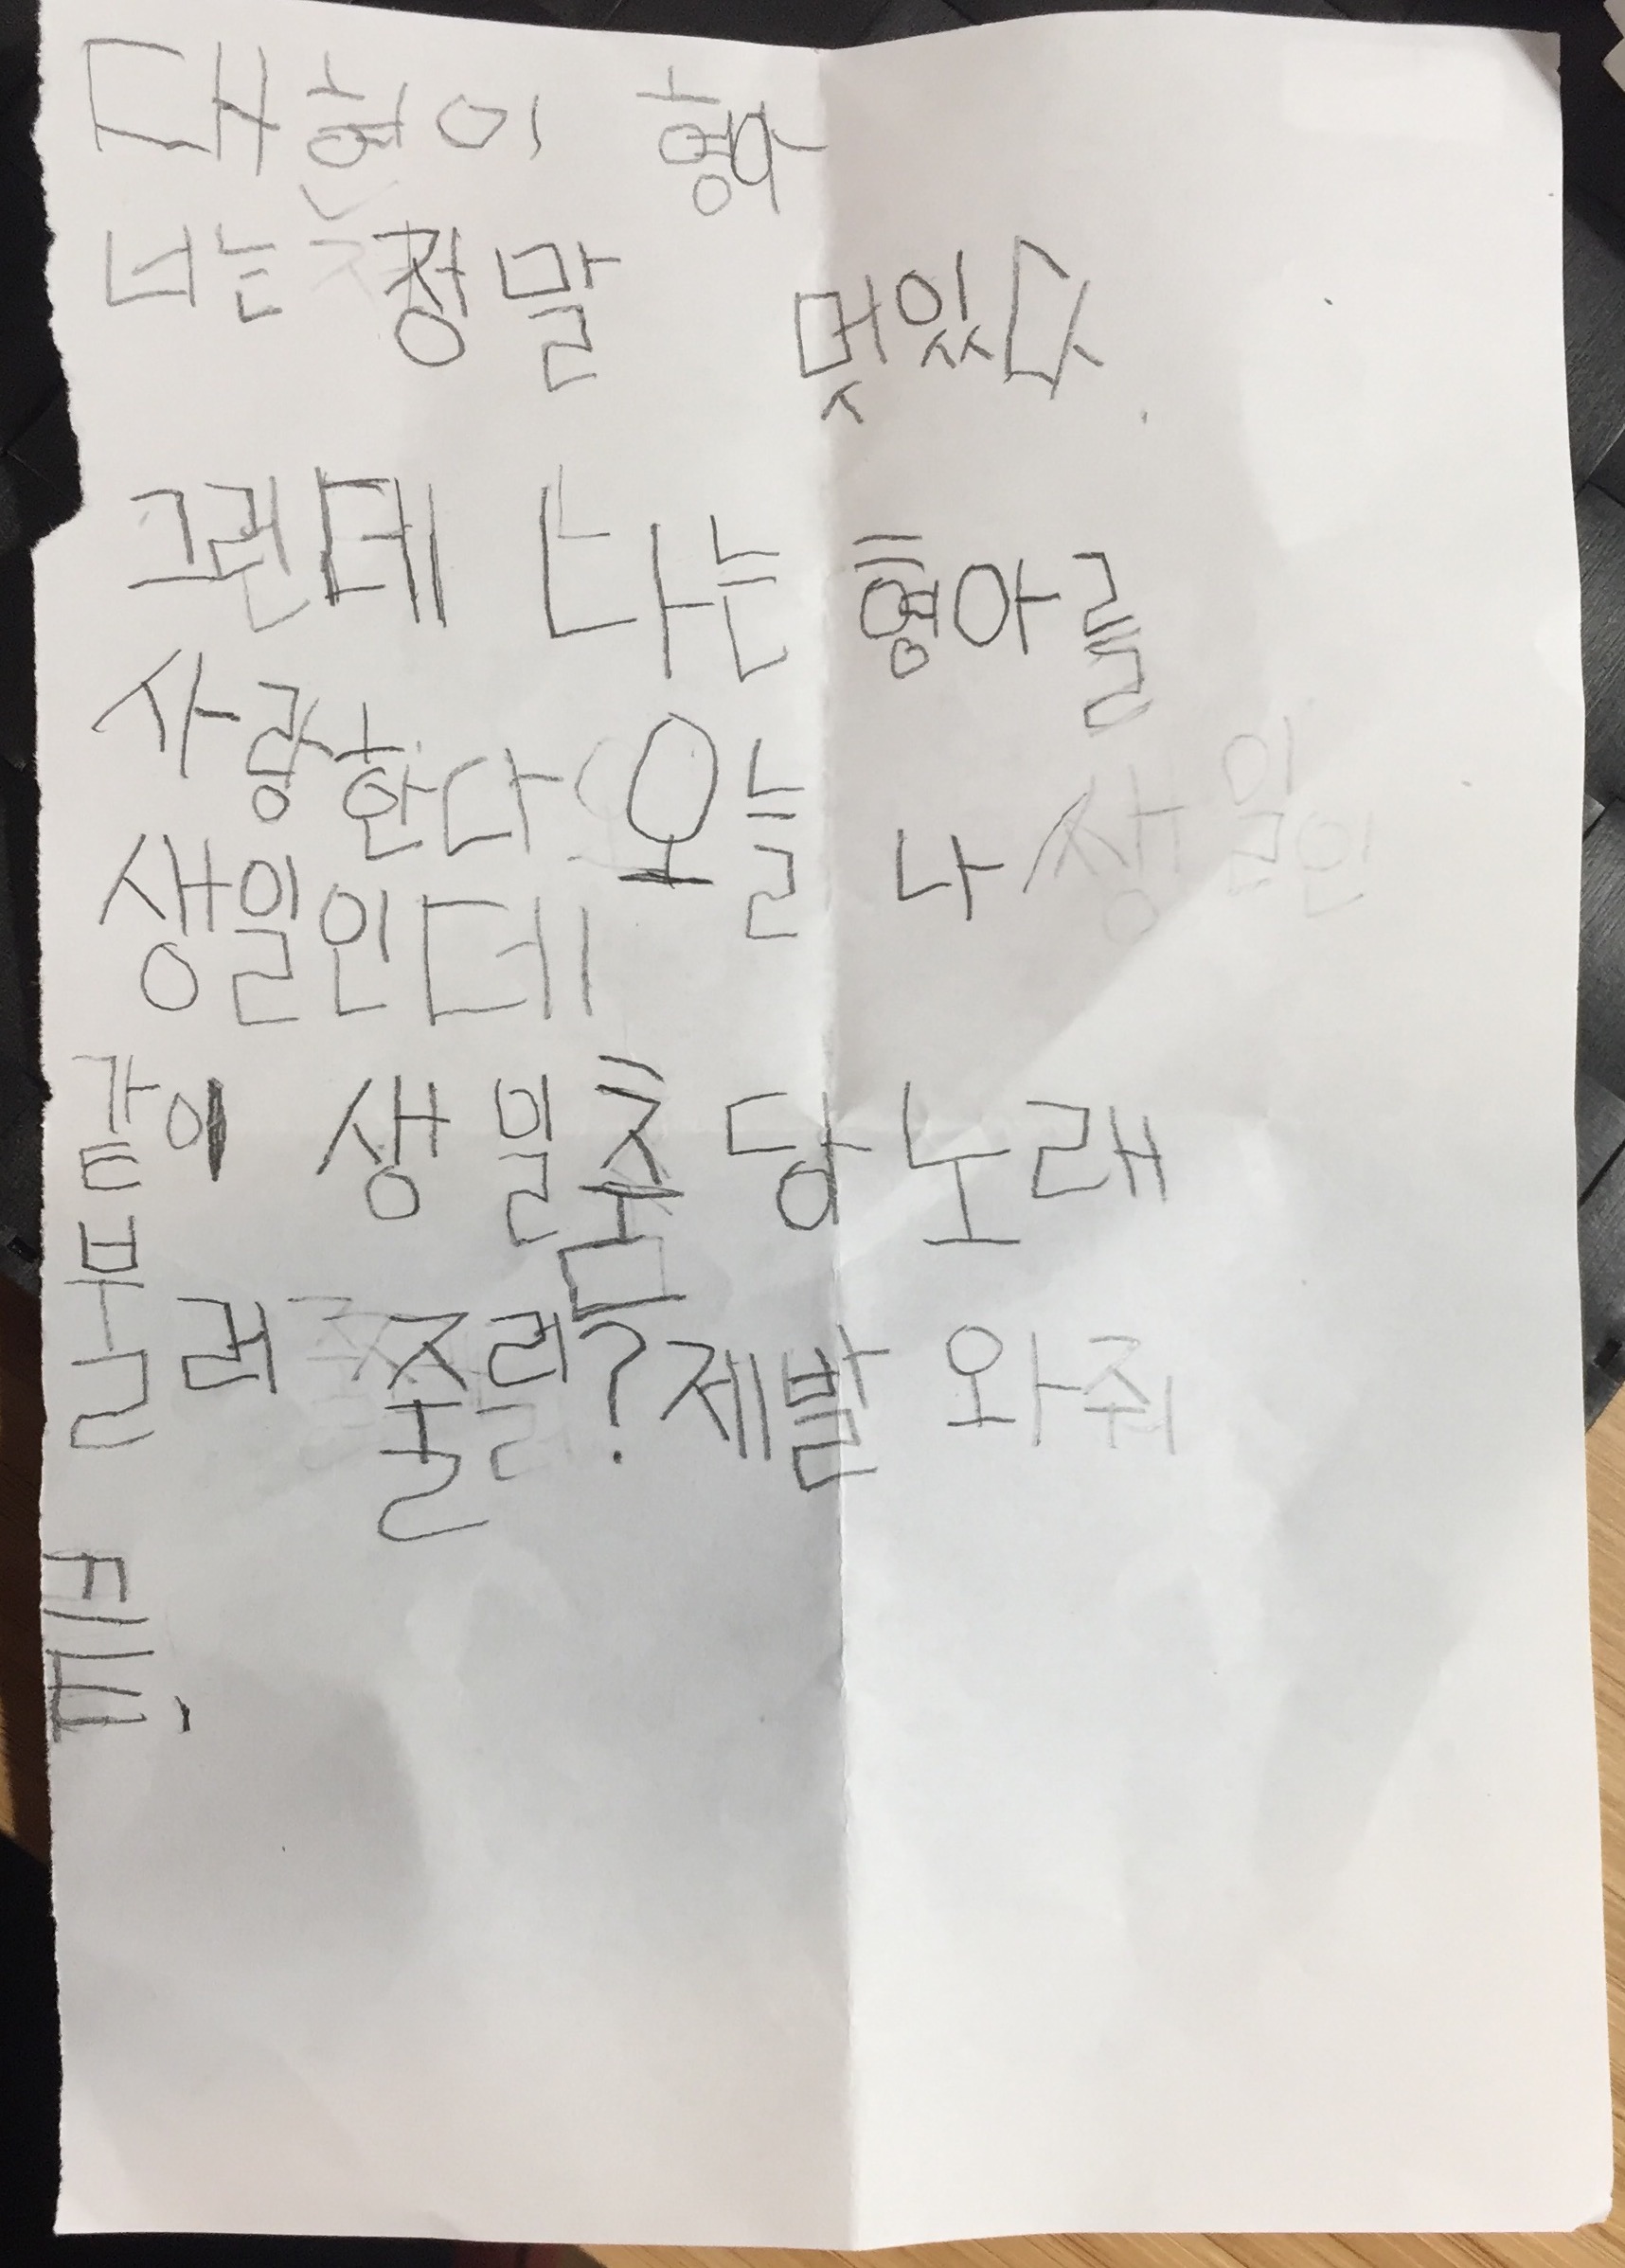 대현이 형아
너는 정말 멋있다.
그런데 나는 형아를
사랑한다 오늘 나
생일인데
같이 생일춤 당 노래
불러 줄래? 제발 와줘
튼.